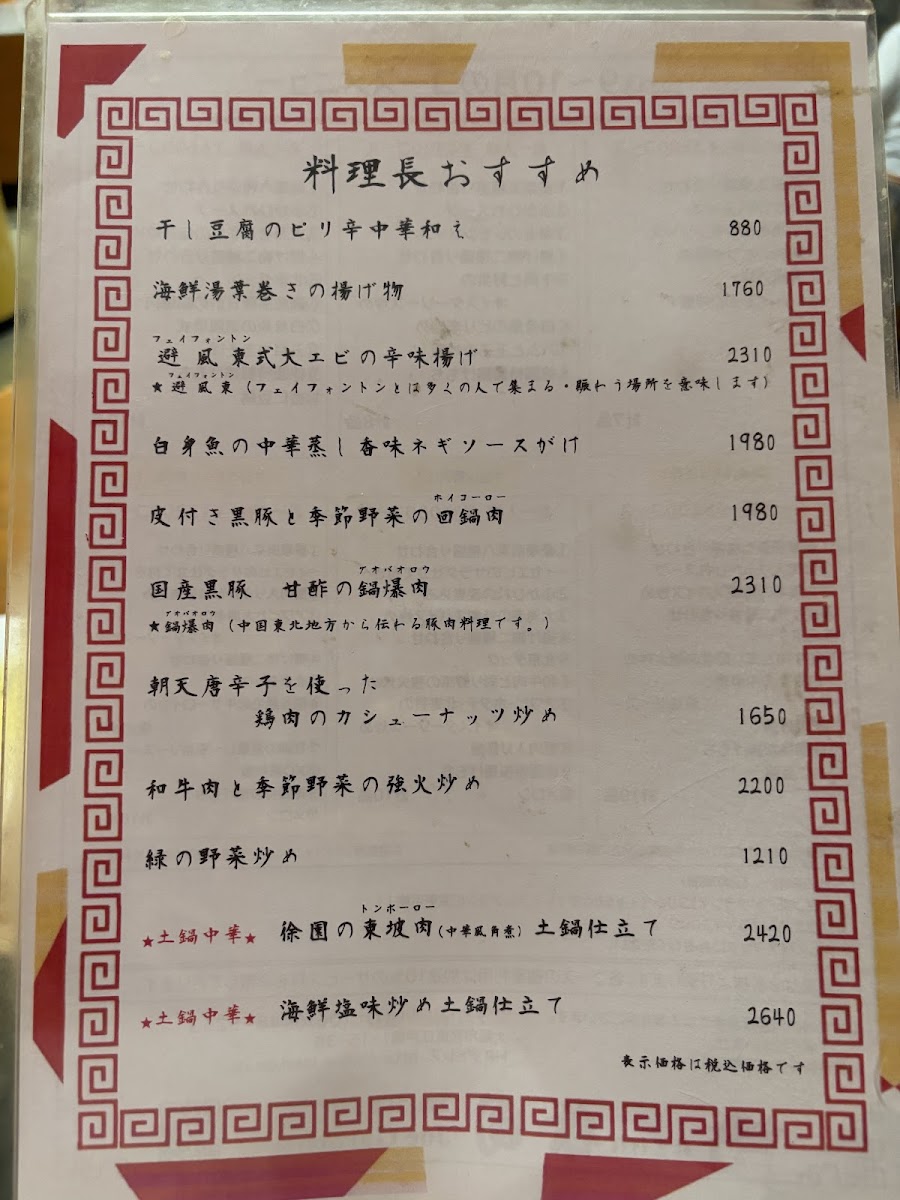 料理長おすすめ
干し豆腐のピリ辛中華和え 880
海鮮湯葉巻きの揚げ物 1760
フェイフォントン
避風東式大エビの辛味揚げ 2310
フェイフォントン
★避風東(フェイフォントンとは多くの人で集まる・賑わう場所を意味します)
白身魚の中華蒸し香味ネギソースがけ 1980
ホイコーロー
皮付き黒豚と季節野菜の回鍋肉 1980
アオバオロウ
国産黒豚 甘酢の鍋爆肉 2310
アオバオロウ
★鍋爆肉(中国東北地方から伝わる豚肉料理です。)
朝天唐辛子を使った
鶏肉のカシューナッツ炒め 1650
和牛肉と季節野菜の強火炒め 2200
緑の野菜炒め 1210
トンポーロー
★土鍋中華★ 徐園の東坡肉(中華風角煮)土鍋仕立て 2420
★土鍋中華★ 海鮮塩味炒め土鍋仕立て 2640
表示価格は税込価格です